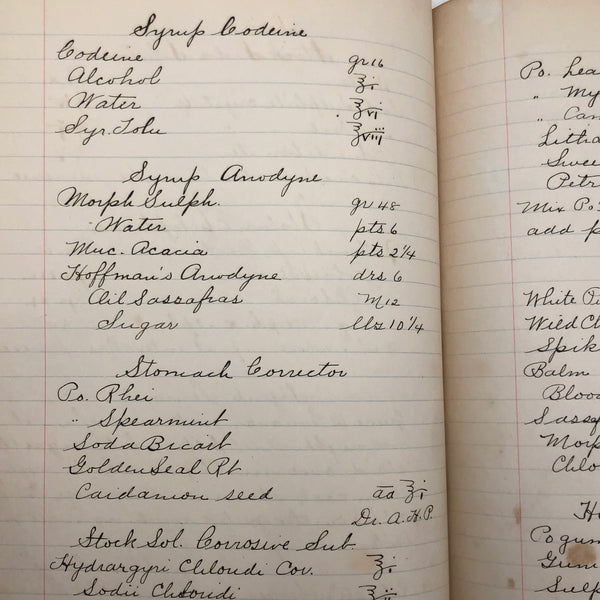 Syrup Codeine
Codeine gr 16
Alcohol ℥i
Water ℥vi
Syr. Tolu ℥viii
Syrup Anodyne
Morph Sulph. gr 48
Water pts 6
Muc. Acacia pts 2 1/4
Hoffman's Anodyne drs 6
Oil Sassafras M 12
Sugar lbs 10 1/4
Stomach Corrector
Po. Rhei
" Spearmint
Soda Bicarb
Golden Seal Rt
Cardamon seed aa ℥i
Dr. A. H. P.
Stock Sol. Corrosive Sub.
Hydrargyri Chloridi Cov. ℥i
Sodii Chloridi ℥ii
Po. Lea
" My
" Can
Lithia
Swee
Petr
Mix Po
add p
White Pi
Wild Ch
Spik
Balm
Blood
Sassaf
Morp
Chlo
H
Po gum
Gum
Sulp